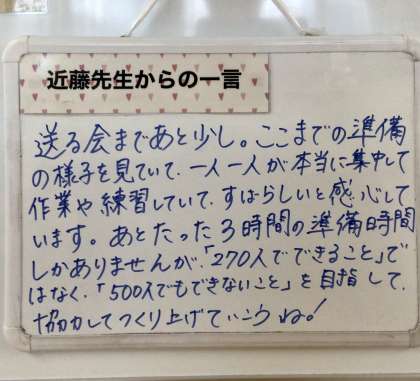 近藤先生からの一言
送る会まであと少し。ここまでの準備
の様子を見ていて、一人一人が本当に集中して
作業や練習していて、すばらしいと感心して
います。あとたった3時間の準備時間
しかありませんが、「270人でできること」で
はなく、「500人でもできないこと」を目指して、
協力してつくり上げていこうね!